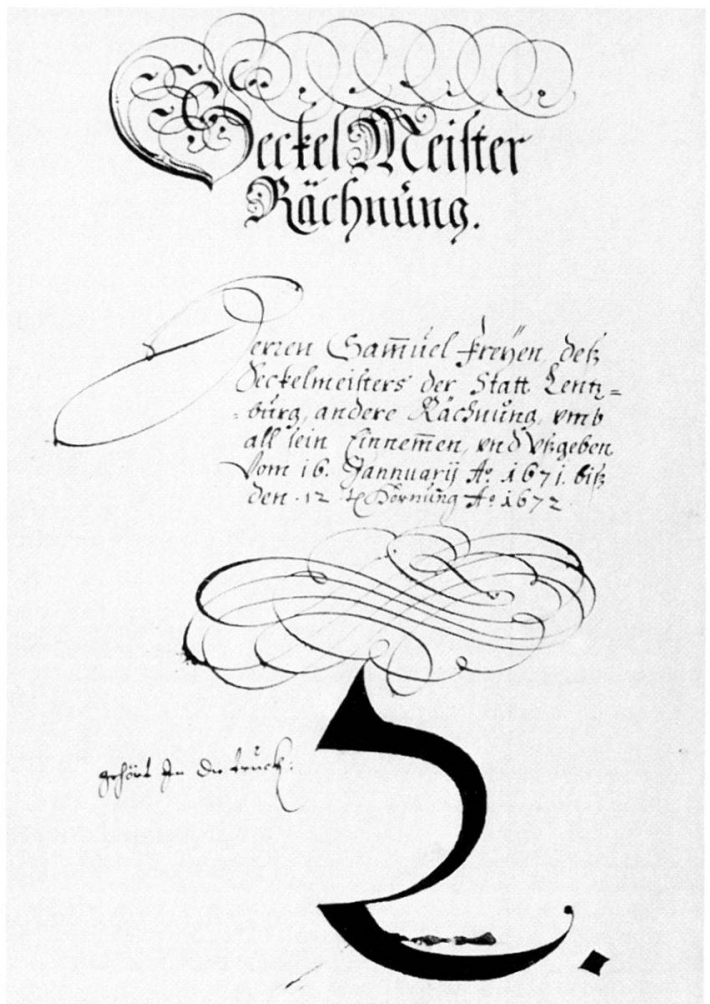 Seckel Meister
Rächnúng.
Herren Samūel Freÿen, deß
Seckelmeisters der Statt Lentz=
=búrg, andere Rächnúng, vmb
all sein Einnem̄en, vnd Vßgeben
Vom 16. Jannuarij Aº. 1671. biß
den .12 Hornúng Aº. 1672.
gehört In die trúck:
2.